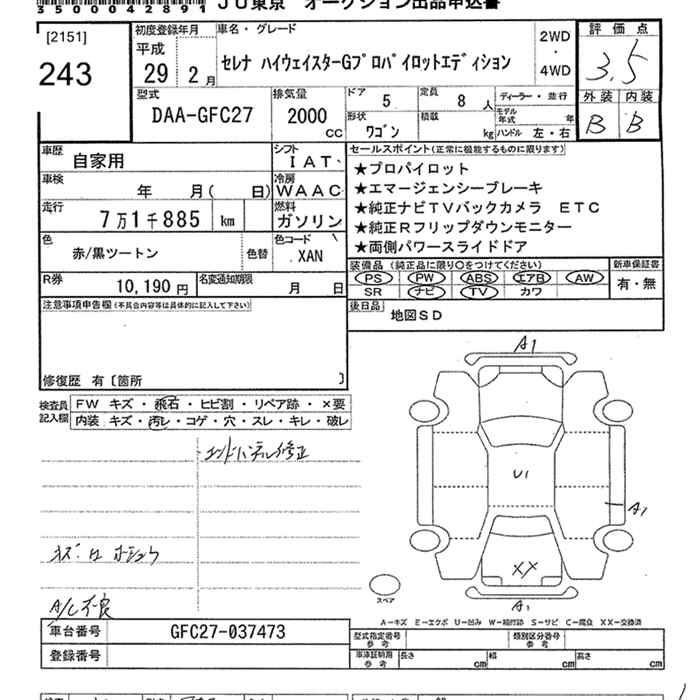 3500042891 JU東京 オークション出品申込書
[2151]
243
初度登録年月
平成
29年 2月
車名・グレード
セレナ ハイウェイスターGプロパイロットエディション
2WD
・
4WD
評価点
3.5
外装 内装
B B
型式
DAA-GFC27
排気量
2000
CC
ドア 5
定員 8人
形状 ワゴン
積載 kg
ディーラー・並行
モデル年式 年
ハンドル 左・右
車歴
自家用
シフト
IAT
車検
年 月( 日)
冷房
WAAC
走行
7万1千885 km
燃料
ガソリン
色
赤/黒ツートン
色替
色コード
XAN
R券
10,190円
名変通知期限
月 日
セールスポイント(正常に機能するものに限ります)
★プロパイロット
★エマージェンシーブレーキ
★純正ナビTVバックカメラ ETC
★純正Rフリップダウンモニター
★両側パワースライドドア
装備品(純正品に限り○をつけてください)
PS PW ABS エアB AW
SR ナビ TV カワ
新車保証書
有・無
後日品
地図SD
注意事項申告欄(不具合内容等は具体的に記入して下さい)
修復歴 有〔箇所 〕
検査員記入欄
FW キズ・飛石・ヒビ割・リペア跡・×要
内装 キズ・汚レ・コゲ・穴・スレ・キレ・破レ
A/C不良
A1
U1
A1
XX
A1
スペア
A−キズ E−エクボ U−凹み W−補修跡 S−サビ C−腐食 XX−交換済
車台番号
GFC27-037473
登録番号
型式指定番号
参考
類別区分番号
参考
車庫証明用
参考
長さ cm
幅 cm
高さ cm